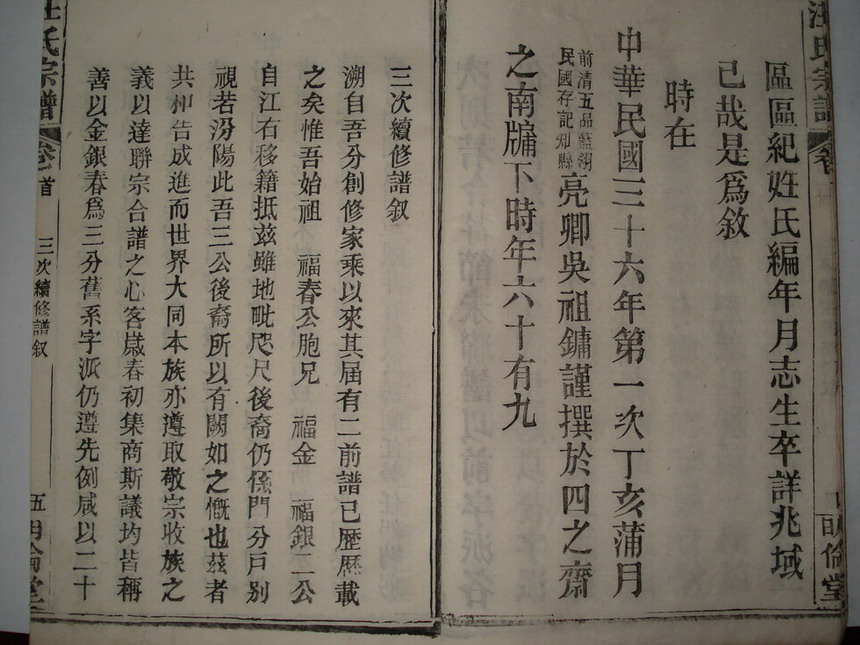 汪氏宗譜
卷
明倫堂
區區紀姓氏編年月志生卒詳兆域
已哉是爲敘
時在
中華民國三十六年第一次丁亥蒲月
前清五品藍翎
民國存記知縣
亮卿吳祖鏞謹撰於四之齋
之南牖下時年六十有九
三次續修譜叙
溯自吾分創修家乘以來其届有二前譜已歷歷載
之矣惟吾始祖 福春公胞兄 福金 福銀二公
自江右移籍抵茲雖地毗咫尺後裔仍係門分戸別
視若汾陽此吾三公後裔所以有闕如之慨也茲者
共和告成進而世界大同本族亦遵取敬宗收族之
義以達聯宗合譜之心客歲春初集商斯議均皆稱
善以金銀春爲三分舊系字派仍遵先例咸以二十
汪氏宗譜
卷首
三次續修譜叙
五
明倫堂